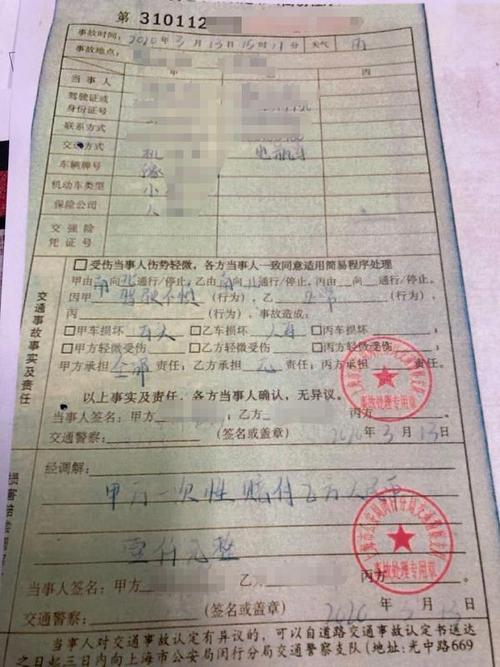 第 310112
事故时间: 2020年3月13日15时11分 天气 雨
事故地点:
甲 丙
当事人
驾驶证或
身份证号
联系方式
交通方式 机 电瓶车
车辆牌号
机动车类型 小
保险公司 人
交强险
凭证号
交通事故事实及责任
□受伤当事人伤势轻微,各方当事人一致同意适用简易程序处理
甲由南向北通行/停止,乙由南向北通行/停止,丙由 向 通行/停止。
因甲 (行为),乙 正常 (行为),
丙 (行为),事故造成:
□甲车损坏 □乙车损坏 □丙车损坏
□甲方轻微受伤 □乙方轻微受伤 □丙方轻微受伤
甲方承担 全部 责任,乙方承担 无 责任,丙方承担 责任。
以上事实及责任,各方当事人确认,无异议。
当事人签名:甲方 ,乙方 丙方
交通警察: (签名或盖章) 2020年3月13日
事故处理专用章
经调解:
甲方一次性赔付乙方人民币
壹仟元整
当事人签名:甲方 乙 丙方
交通警察: (签名或盖章) 2020年3月13日
事故处理专用章
当事人对交通事故认定有异议的,可以自道路交通事故认定书送达
之日起三日内向上海市公安局闵行分局交通警察支队(地址:光中路669